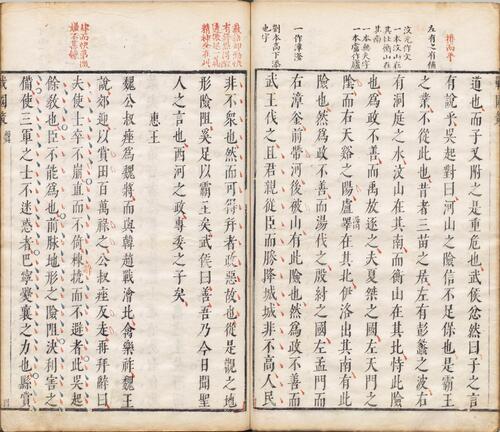 左右之有
道也而子又附之是重危也武侯忿然曰子之言
有說乎吳起對曰河山之險信不足保也是霸王
之業不從此也昔者三苗之居左有彭蠡之波右
汶元作文
一本汶山在
其北衡山在
其南
有洞庭之水汶山在其南而衡山在其北恃此險
一本無夫字
也為政不善而禹放逐之夫夏桀之國左天門之
陰而右天谿之陽廬睪在其北伊洛出其南有此
險也然為政不善而湯伐之殷紂之國左孟門而
一作漳滏
右漳釜前帶河後被山有此險也然為政不善而
武王伐之且君親從臣而勝降城城非不高人民
非不眾也然而可得并者政惡故也從是觀之地
形險阻奚足以霸王矣武侯曰善吾乃今日聞聖
人之言也西河之政專委之子矣
惠王
魏公叔痤為魏將而與韓趙戰澮北禽樂祚魏王
說郊迎以賞田百萬祿之公叔痤反走再拜辭曰
夫使士卒不崩直而不倚橈而不避者此吳起
餘教也臣不能為也前脉地形之險阻決利害之
備使三軍之士不迷惑者巴寧爨襄之力也縣賞